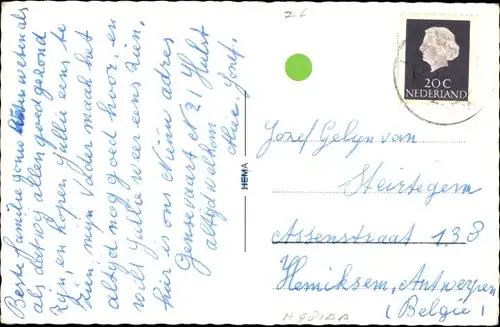 Beste familie gouw weten als
als dat nog allen goed gezond
zijn, en hopen jullie eens te
zien, mijn Vader maak het
altijd nog goed hoor, en
wilt jullie weer eens zien,
hier is ons Nieuw adres
Gensevaart N 21 Hulst
altijd welkom
Jozef.
HEMA
26
20 C
NEDERLAND
Jozef Gelyn van
Steirtegem
Assenstraat 133
Hemiksem, Antwerpen
(België)